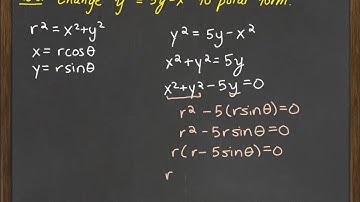 Change y² = 5y-x² to polar form.
r² = x²+y²
x = rcosθ
y = rsinθ
y² = 5y - x²
x²+y² = 5y
x²+y² - 5y = 0
r² - 5(rsinθ) = 0
r² - 5rsinθ = 0
r(r - 5sinθ) = 0
r